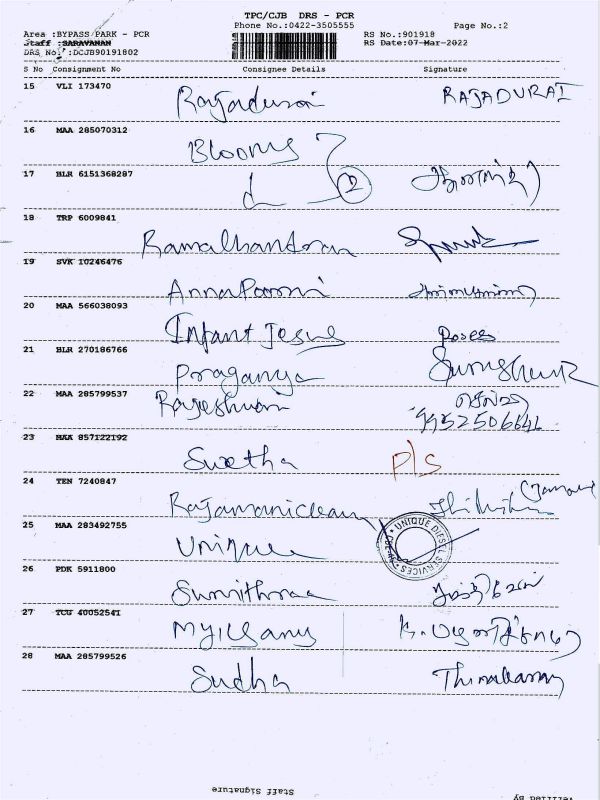 TPC/CJB DRS - PCR
Phone No.:0422-3505555 Page No.:2
Area :BYPASS PARK - PCR RS No.:901918
Staff :SARAVANAN RS Date:07-Mar-2022
DRS No. :DCJB90191802
S No Consignment No Consignee Details Signature
15 VLI 173470 Rajadurai RAJADURAI
16 MAA 285070312 Blooms
17 BLR 6151368287 2
18 TRP 6009841 Ramachandran
19 SVK 10246476 AnnaPoorni
20 MAA 566038093 Infant Jesus
21 BLR 270186766 Praganya
22 MAA 285799537 Rajeshwari
9952506646
23 MAA 857122192 Swetha P/S
24 TEN 7240847 Rajamanickam
25 MAA 283492755 Unique UNIQUE DIESEL SERVICES
26 PDK 5911800 Sumithraa
27 TCU 40052541
28 MAA 285799526 Sudha
Staff Signature
Verified By